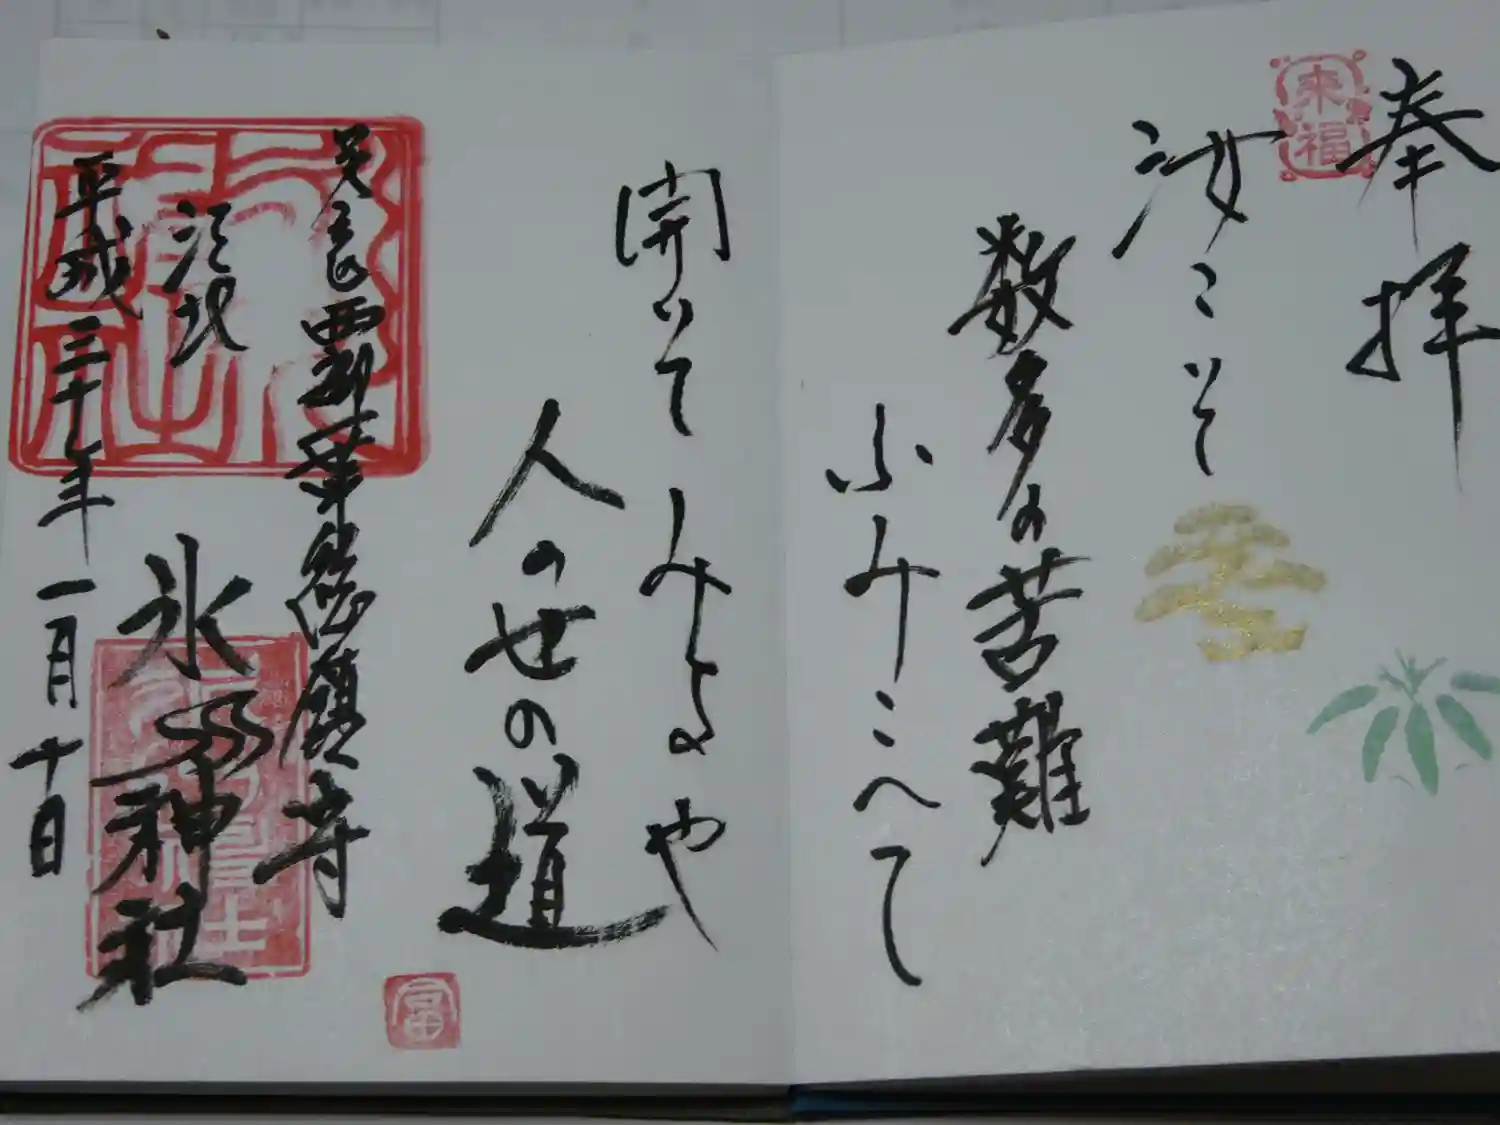 奉拝
来福
汝こそ
数多の苦難
ふみこへて
開いてみよや
人の世の道
総鎮守
江北
氷川神社
平成三十一年一月十日